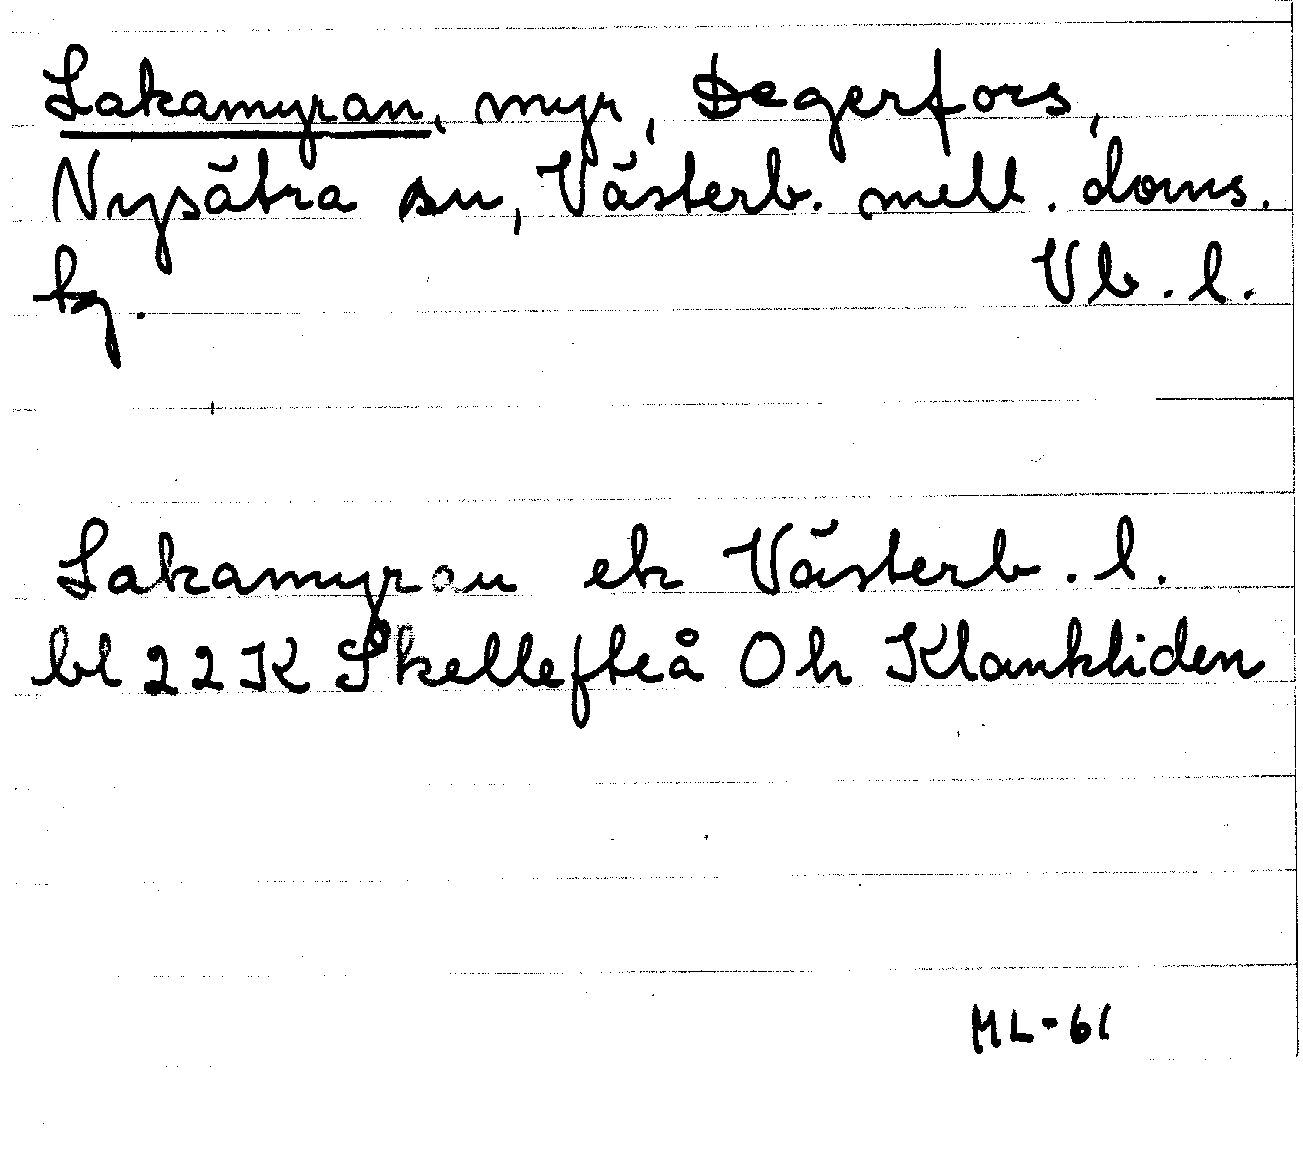 Lakamyran, myr, Degerfors,
Nysätra sn, Västerb. mell. doms.
hg. Vb. l.
Lakamyran ek Västerb. l.
bl 22K Skellefteå Oh Klankliden
ML-61